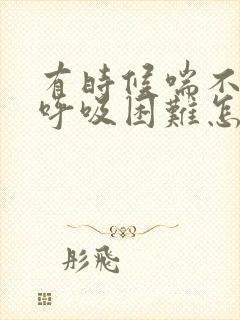 有時候喘不
呼吸困難怎
彤飛